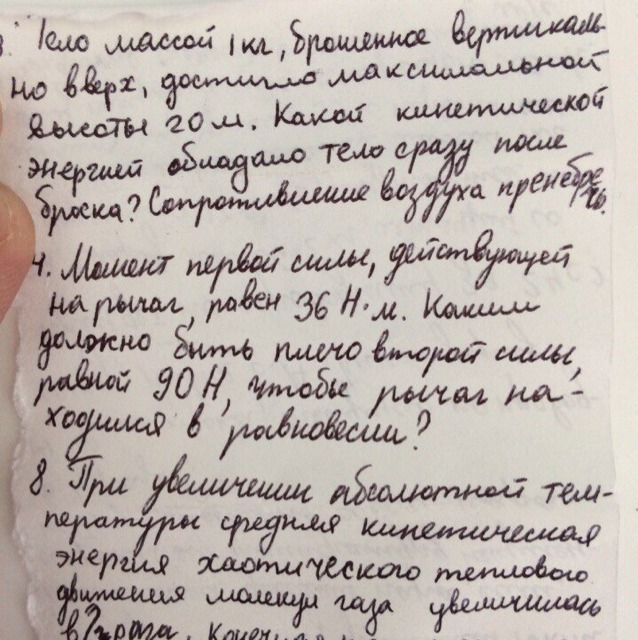 3. Тело массой 1 кг, брошенное вертикаль
но вверх, достигло максимальной
высоты 20 м. Какой кинетической
энергией обладало тело сразу после
броска? Сопротивление воздуха пренебречь.
4. Момент первой силы, действующей
на рычаг, равен 36 Н·м. Каким
должно быть плечо второй силы,
равной 90 Н, чтобы рычаг на-
ходился в равновесии?
8. При увеличении абсолютной тем-
пературы средняя кинетическая
энергия хаотического теплового
движения молекул газа увеличилась
в 2 раза. Конечная